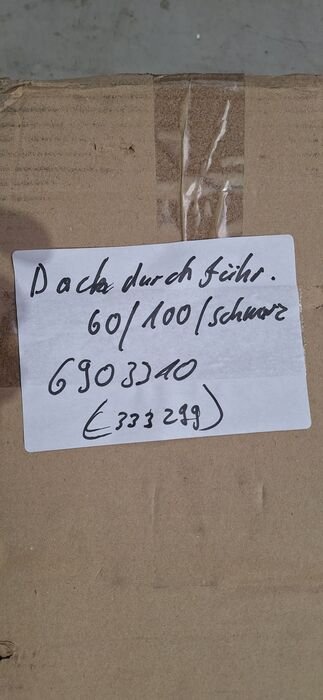 Dachdurchführ.
60/100/schwarz
6903310
(333299)